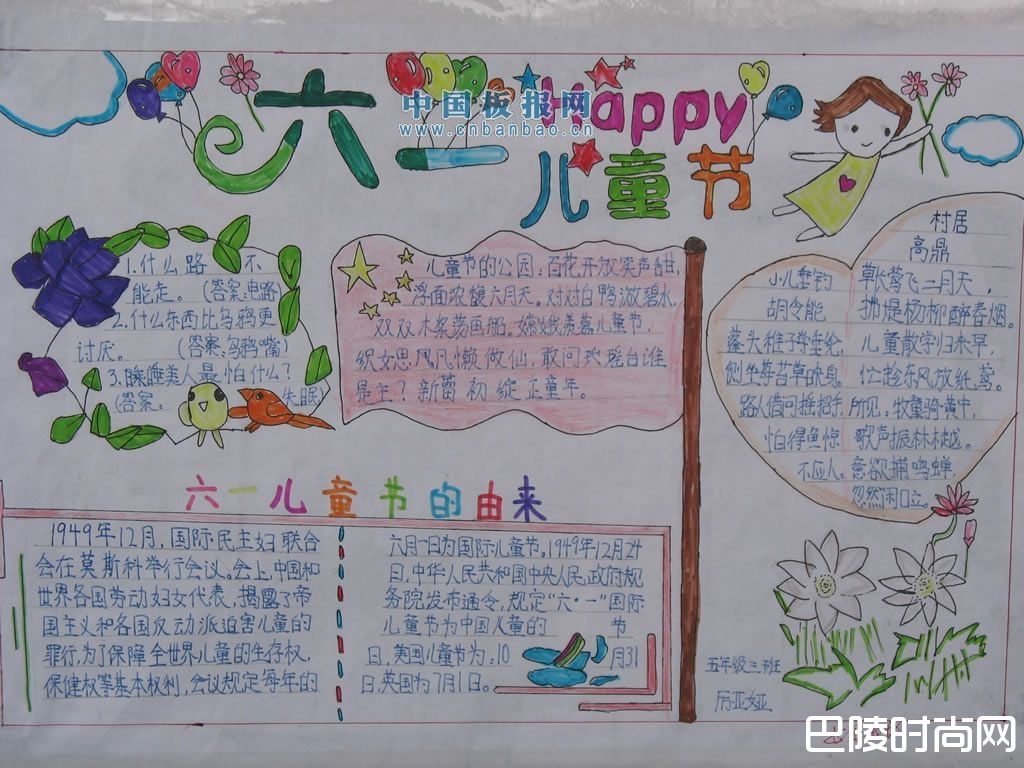 六一
Happy
儿童节
中国板报网
www.cnbanbao.cn
1.什么路 不
能走。(答案:电路)
2.什么东西比乌鸦更
讨厌。(答案:乌鸦嘴)
3.睡美人最怕什么?
(答案. 失眠)
儿童节的公园:百花开放笑声甜,
浮面浓馥六月天。对对白鸭游碧水,
双双木桨荡画船。嫦娥羡慕儿童节,
织女思凡懒做仙。敢问瑶台谁
是主?新蕾初绽正童年。
村居
高鼎
草长莺飞二月天,
拂堤杨柳醉春烟。
儿童散学归未早,
忙趁东风放纸鸢。
小儿垂钓
胡令能
蓬头稚子学垂纶,
侧坐莓苔草映身。
路人借问摇招手,
怕得鱼惊
不应人。
所见:牧童骑黄牛,
歌声振林樾。
意欲捕鸣蝉,
忽然闭口立。
六一儿童节的由来
1949年12月,国际民主妇联合
会在莫斯科举行会议。会上,中国和
世界各国劳动妇女代表,揭露了帝
国主义和各国反动派迫害儿童的
罪行,为了保障全世界儿童的生存权,
保健权等基本权利,会议规定每年的
六月一日为国际儿童节。1949年12月24
日,中华人民共和国中央人民政府规
务院发布通令,规定"六·一"国际
儿童节为中国儿童的 节
日,美国儿童节为:10 月31
日,英国为7月1日。
五年级三班
厉亚娅
巴陵时尚网